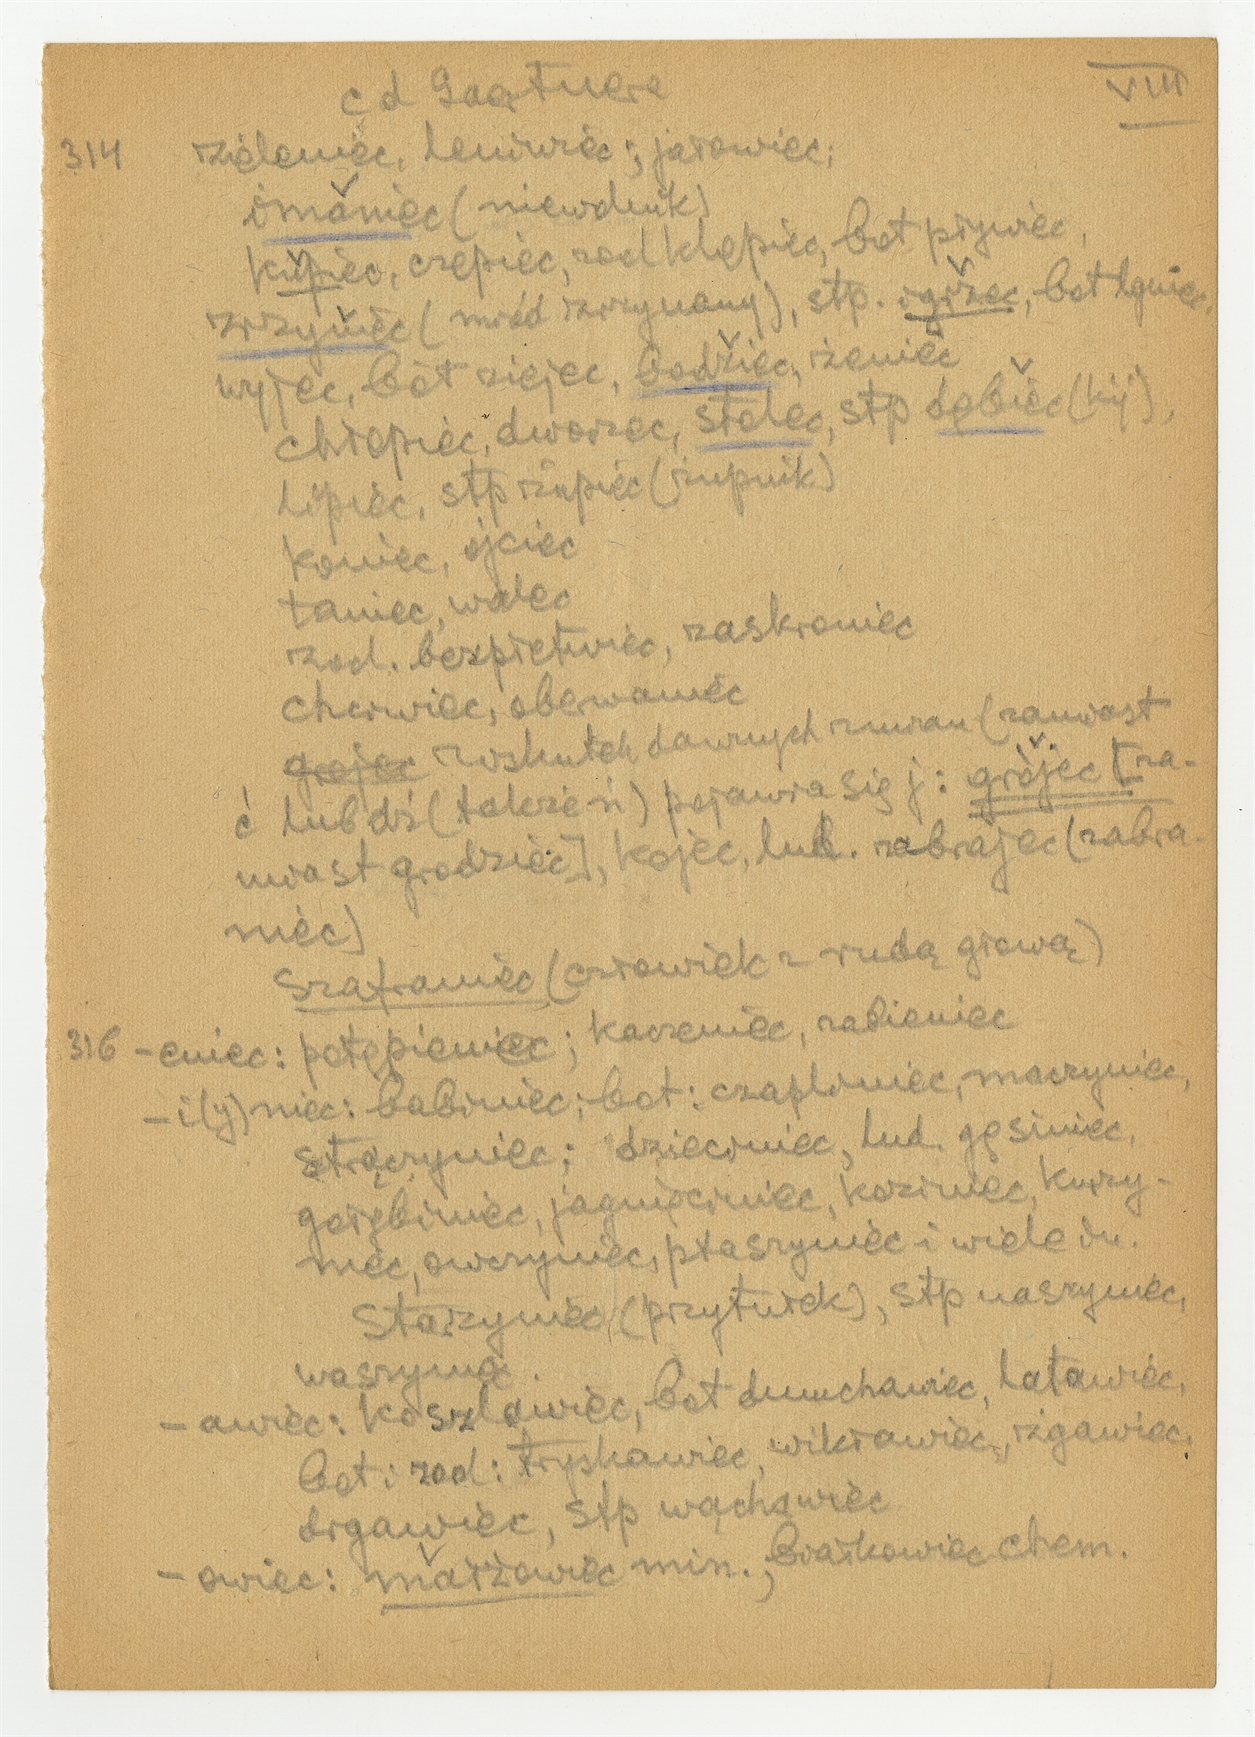 cd Gaertnera VIII
314 zieleniec, leniwiec; jałowiec;
omaniec (niewdzięk)
kupiec, czepiec, zool klępiec, bot pływiec,
zrzyniec (miód zrzynany), stp. igrzec, bot lgniec,
wyjec, bot ziejec, bodziec, żeniec
chłopiec, dworzec, stolec, stp dębiec (kij),
lipiec, stp żupiec (żupnik)
koniec, ojciec
taniec, walec
zool. bezpłetwiec, zaskroniec
cherwiec, oberwaniec
grojec wskutek dawnych zmian (zamiast
ć lub dź (także ń) pojawia się j: grójec [za-
miast grodziec], kojec, lud. zabrajec (zabra-
niec)
szafraniec (człowiek z rudą głową)
316 -eniec: potępieniec; kaczeniec, rabieniec
-i(y)niec: babiniec; bot: czapliniec, maczyniec,
strączyniec; dzieciniec, lud. gęsiniec,
gołębiniec, jagnięciniec, koziniec, kurzy-
niec, owczyniec, ptaszyniec i wiele in.
Starzyniec (przytułek), stp naszyniec,
waszyniec.
-awiec: koszlawiec, bot dmuchawiec, latawiec,
bot i zool: tryskawiec, wikławiec, rzgawiec,
drgawiec, stp wąchawiec
-owiec: małżowiec min.; białkowiec chem.